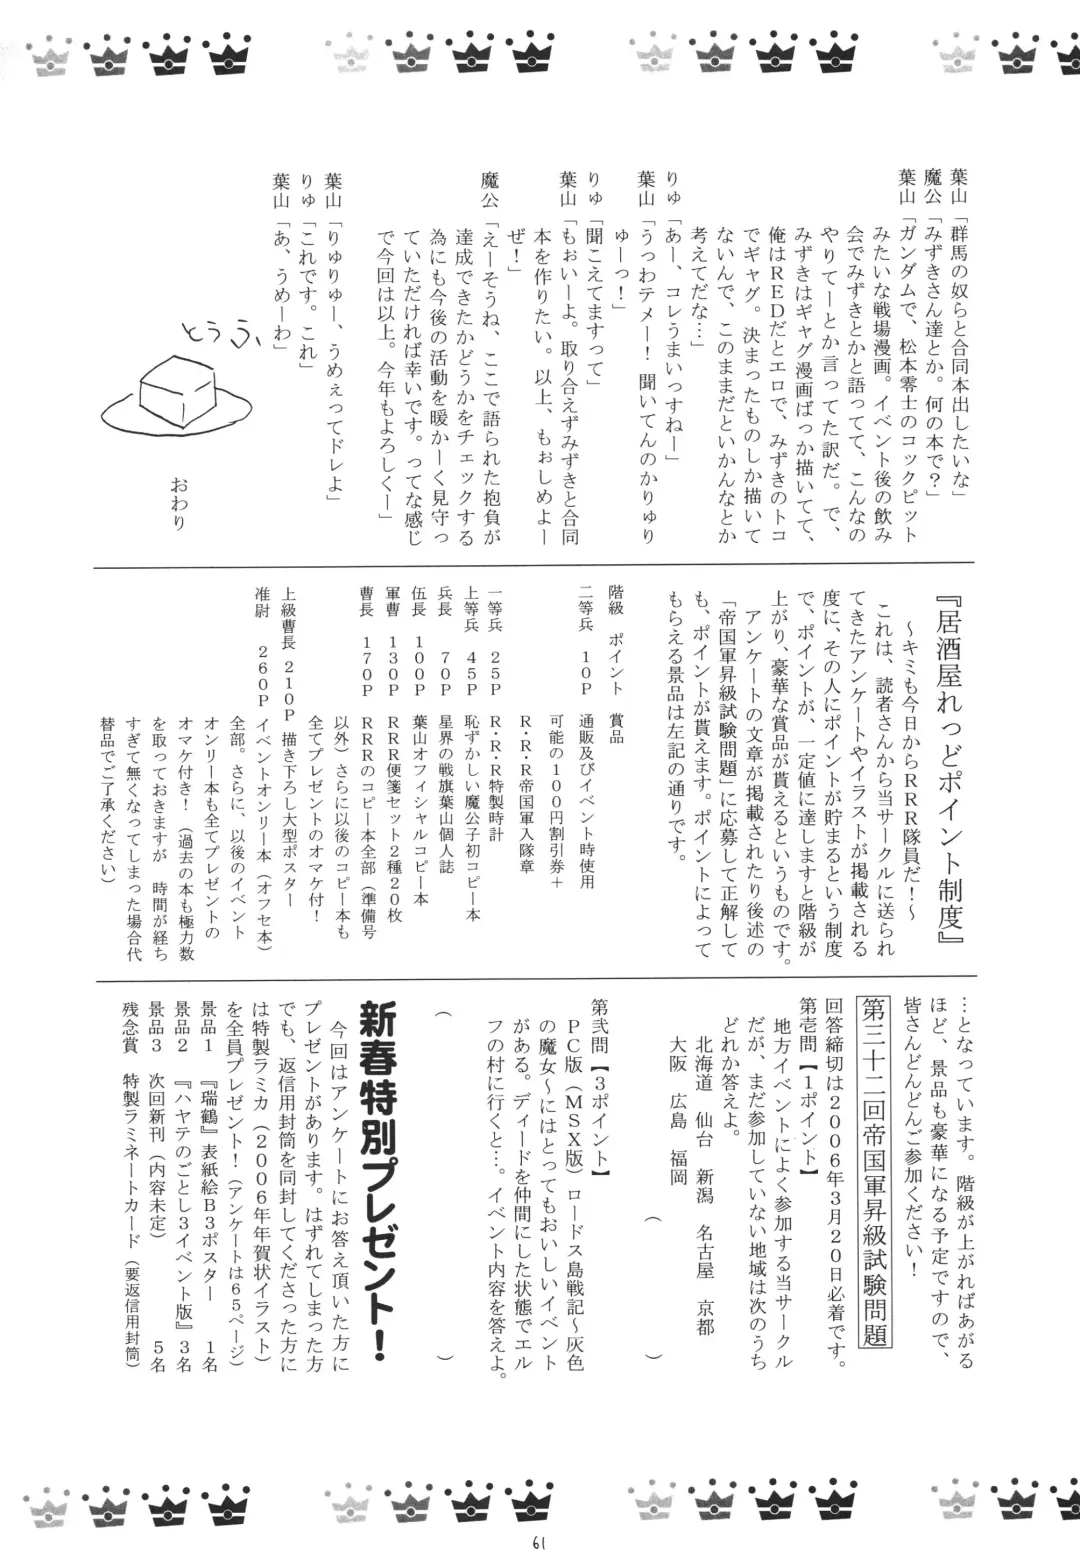 葉山「群馬の奴らと合同本出したいな」
魔公「みずきさん達とか。何の本で？」
葉山「ガンダムで、松本零士のコックピット
みたいな戦場漫画。イベント後の飲み
会でみずきとかと語ってて、こんなの
やりてーとか言ってた訳だ。で、
みずきはギャグ漫画ばっか描いてて、
俺はＲＥＤだとエロで、みずきのトコ
でギャグ。決まったものしか描いて
ないんで、このままだといかんなとか
考えてだな…」
りゅ「あー、コレうまいっすねー」
葉山「うっわテメー！聞いてんのかりゅり
ゅーっ！」
りゅ「聞こえてますって」
葉山「もおいーよ。取り合えずみずきと合同
本を作りたい。以上、もぉしめよー
ぜ！」
魔公「えーそうね、ここで語られた抱負が
達成できたかどうかをチェックする
為にも今後の活動を暖かーく見守っ
ていただければ幸いです。ってな感じ
で今回は以上。今年もよろしくー」
葉山「りゅりゅー、うめぇってドレよ」
りゅ「これです。これ」
葉山「あ、うめーわ」
とうふ
おわり
『居酒屋れっどポイント制度』
～キミも今日からＲＲＲ隊員だ！～
これは、読者さんから当サークルに送られ
てきたアンケートやイラストが掲載される
度に、その人にポイントが貯まるという制度
で、ポイントが、一定値に達しますと階級が
上がり、豪華な賞品が貰えるというものです。
アンケートの文章が掲載されたり後述の
「帝国軍昇級試験問題」に応募して正解して
も、ポイントが貰えます。ポイントによって
もらえる景品は左記の通りです。
階級　ポイント　賞品
二等兵　１０Ｐ　通販及びイベント時使用
可能の１００円割引券＋
Ｒ・Ｒ・Ｒ帝国軍入隊章
一等兵　２５Ｐ　Ｒ・Ｒ・Ｒ特製時計
上等兵　４５Ｐ　恥ずかしい魔公子初コピー本
兵長　７０Ｐ　星界の戦旗葉山個人誌
伍長　１００Ｐ　葉山オフィシャルコピー本
軍曹　１３０Ｐ　ＲＲＲ便箋セット２種２０枚
曹長　１７０Ｐ　ＲＲＲのコピー本全部（準備号
以外）さらに以後のコピー本も
全てプレゼントのオマケ付！
上級曹長　２１０Ｐ　描き下ろし大型ポスター
准尉　２６０Ｐ　イベントオンリー本（オフセ本）
全部。さらに、以後のイベント
オンリー本も全てプレゼントの
オマケ付き！（過去の本も極力数
を取っておきますが　時間が経ち
すぎて無くなってしまった場合代
替品でご了承ください）
…となっています。階級が上がればあがる
ほど、景品も豪華になる予定ですので、
皆さんどんどんご参加ください！
第三十二回帝国軍昇級試験問題
回答締切は２００６年３月２０日必着です。
第壱問【１ポイント】
地方イベントによく参加する当サークル
だが、まだ参加していない地域は次のうち
どれか答えよ。
北海道　仙台　新潟　名古屋　京都
大阪　広島　福岡
（　　　　　）
第弐問【３ポイント】
ＰＣ版（ＭＳＸ版）ロードス島戦記～灰色
の魔女～にはとってもおいしいイベント
がある。ディードを仲間にした状態でエル
フの村に行くと…。イベント内容を答えよ。
（　　　　　）
新春特別プレゼント！
今回はアンケートにお答え頂いた方に
プレゼントがあります。はずれてしまった方
でも、返信用封筒を同封してくださった方に
は特製ラミカ（２００６年年賀状イラスト）
を全員プレゼント！（アンケートは６５ページ）
景品１　『瑞鶴』表紙絵Ｂ３ポスター　１名
景品２　『ハヤテのごとし３イベント版』３名
景品３　次回新刊（内容未定）　５名
残念賞　特製ラミネートカード（要返信用封筒）
61